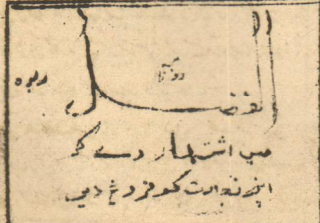 روزنامہ
الفضل ربوہ
میں اشتہار دے کر
اپنی تجارت کو فروغ دیں